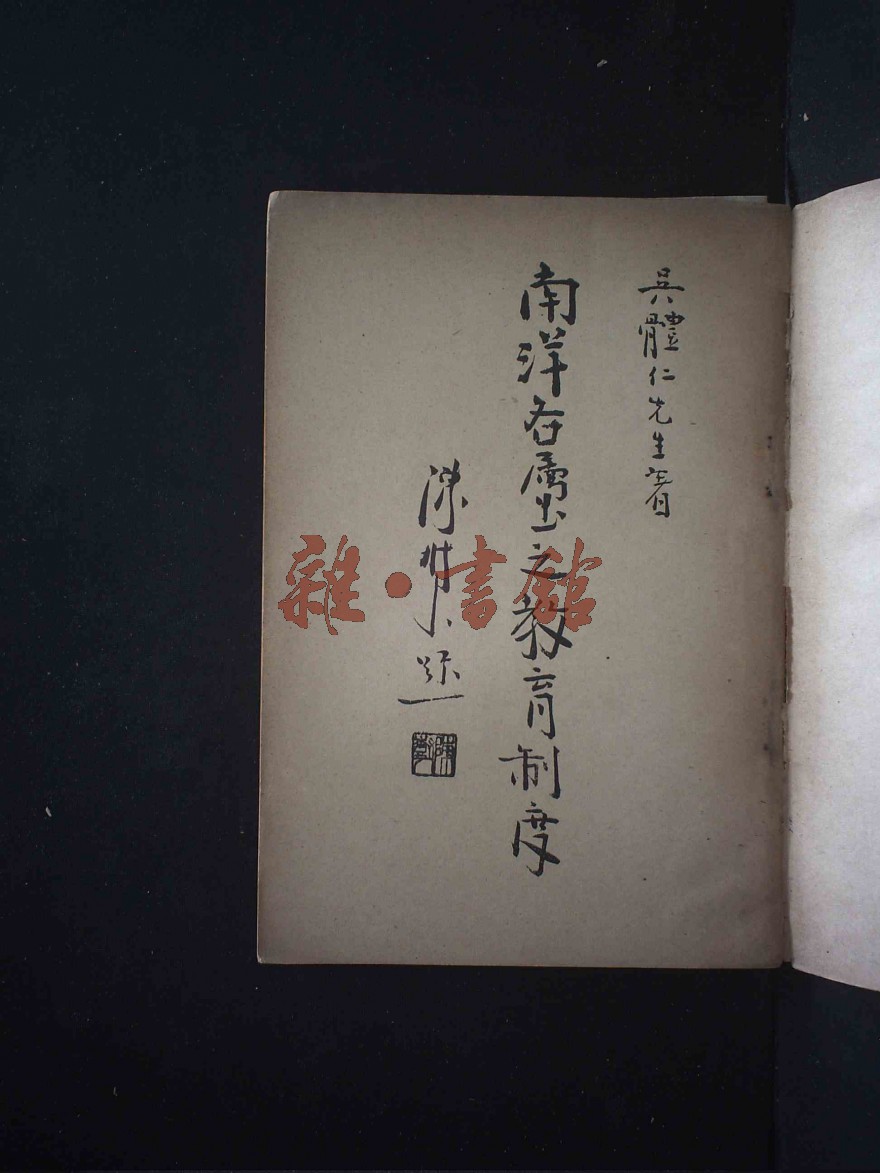 吳體仁先生著
南洋各屬之教育制度
陳 題
雜·書館